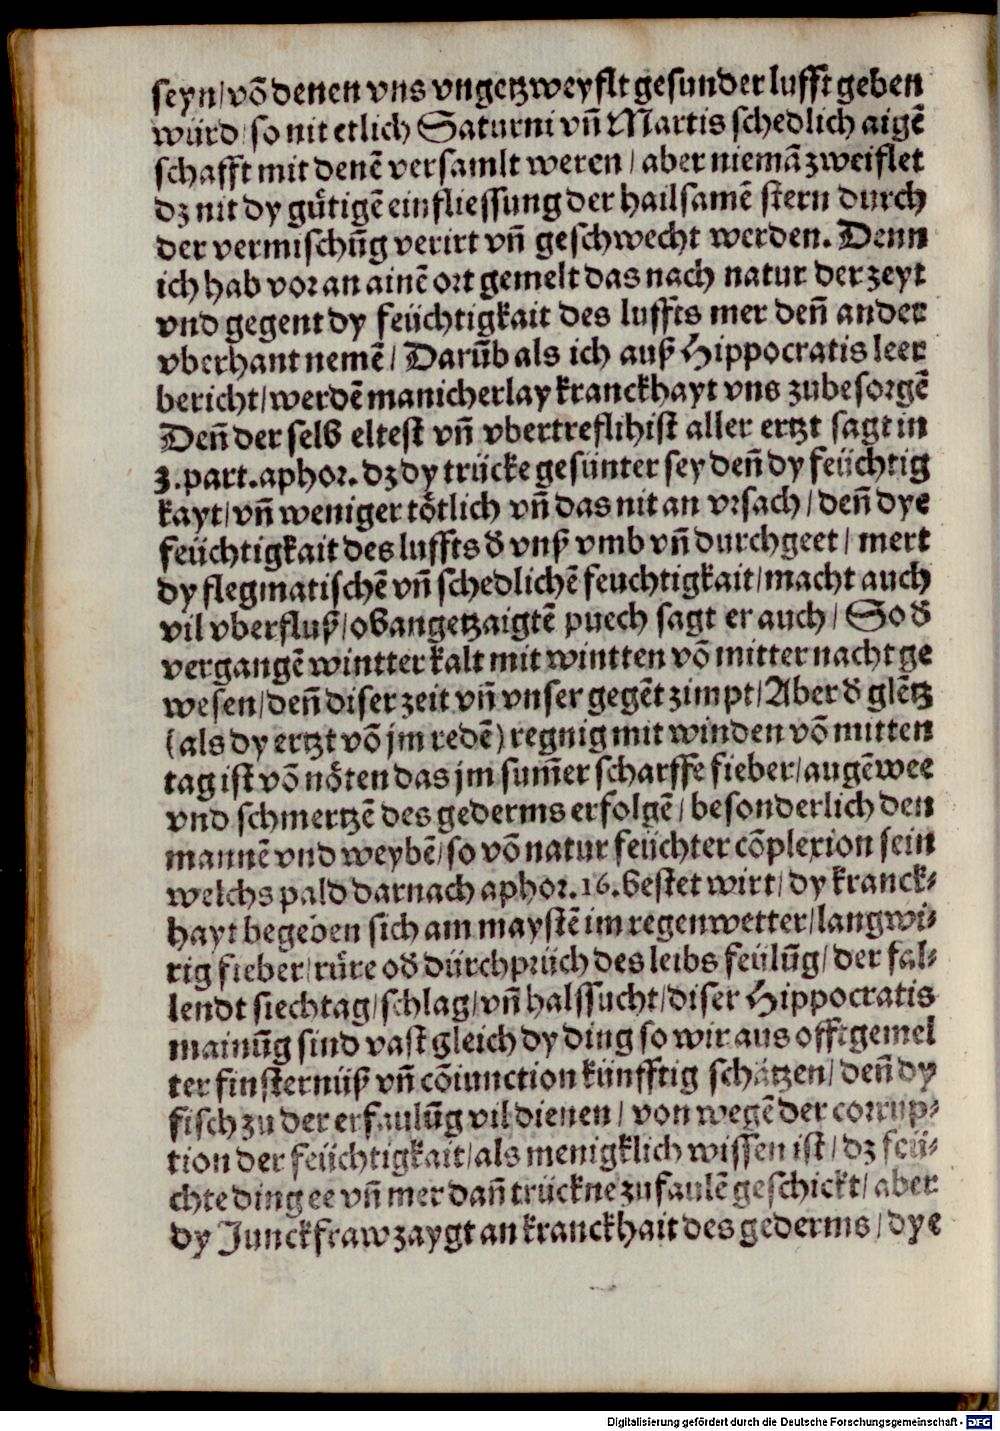 seyn/võ denen vns vngetzweyflt gesunder lufft geben
würd/so nit etlich Saturni vñ Martis schedlich aigẽ
schafft mit denẽ versamlt weren/aber niemã zweiflet
dz nit dy gütigẽ einfliessung der hailsamẽ stern durch
der vermischũg verirt vñ geschwecht werden. Denn
ich hab vor an ainẽ ort gemelt das nach natur der zeyt
vnd gegent dy feüchtigkait des luffts mer deñ ander
vberhant nemẽ/Darũb als ich auß Hippocratis leer
bericht/werdẽ manicherlay kranckhayt vns zubesorgẽ
Deñ der selb eltest vñ vbertreflihist aller ertzt sagt in
3.part.aphor. dz dy trücke gesünter sey deñ dy feüchtig
kayt/vñ weniger tötlich vñ das nit an vrsach/deñ dye
feüchtigkait des luffts đ vnß vmb vñ durchgeet/mert
dy flegmatischẽ vñ schedlichẽ feuchtigkait/macht auch
vil vberfluß/obangetzaigtẽ puech sagt er auch/So đ
vergangẽ wintter kalt mit wintten võ mitternacht ge
wesen/deñ diser zeit vñ vnser gegẽt zimpt/Aber đ glẽtz
(als dy ertzt võ jm redẽ) regnig mit winden võ mitten
tag ist võ nöten das jm sum̃er scharffe fieber/augẽwee
vnd schmertzẽ des gederms erfolgẽ/besonderlich den
mannẽ vnd weybẽ/so võ natur feüchter cõplexion sein
welchs pald darnach aphor.16.bestet wirt/dy kranck⸗
hayt begeben sich am maystẽ im regenwetter/langwi⸗
rig fieber/rüre ođ dürchprüch des leibs feülũg/der fal⸗
lendt siechtag/schlag/vñ halssucht/diser Hippocratis
mainũg sind vast gleich dy ding so wir aus offtgemel
ter finsternüß vñ cõiunction künfftig schätzen/deñ dy
fisch zu der erfaulũg vil dienen/von wegẽ der corrup⸗
tion der feüchtigkait/als menigklich wissen ist/dz feü⸗
chte ding ee vñ mer dañ trückne zufaulẽ geschickt/aber
dy Junckfraw zaygt an kranckhait des gederms/dye
Digitalisierung gefördert durch die Deutsche Forschungsgemeinschaft - DFG